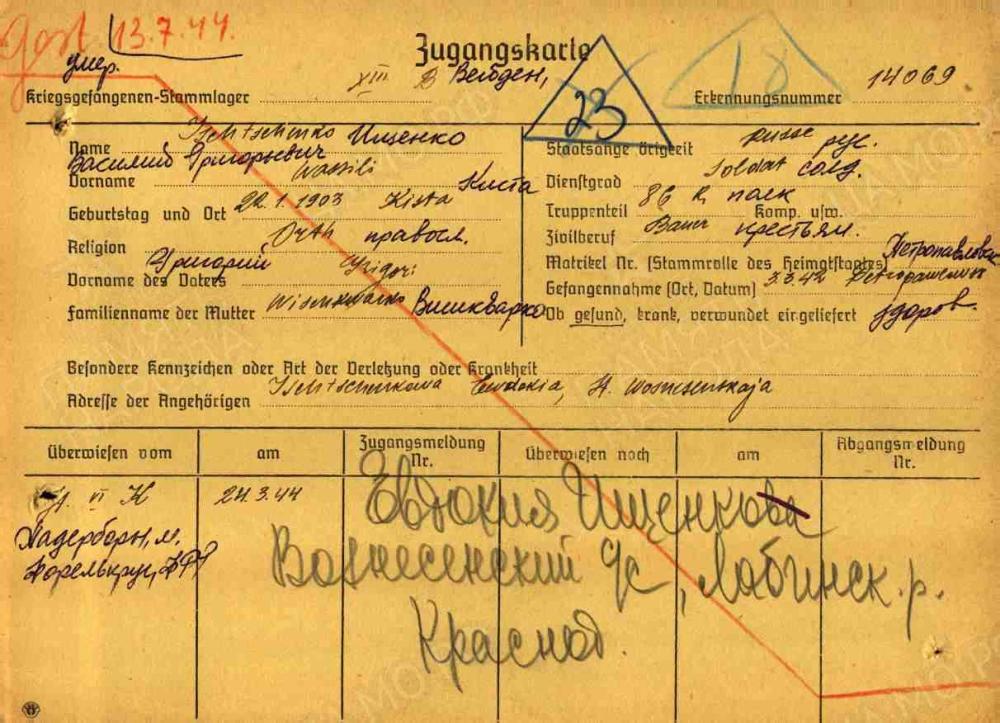 Gest 13.7.44.
умер.
Zugangskarte
Kriegsgefangenen-Stammlager XIII B Вейден, 23 18 Erkennungsnummer 14069
Name Ischtschenko Ищенко
Василий Григорьевич
Vorname Wassili
Geburtstag und Ort 22.1.1903 Kista Киста
Religion Orth правосл.
Григорий Grigori
Vorname des Vaters
Familienname der Mutter Вишкварко
Staatsangehörigkeit Russe рус.
Dienstgrad Soldat солд.
Truppenteil 86 R. полк Komp. usw.
Zivilberuf Bauer крестьян.
Matrikel Nr. (Stammrolle des Heimatstaates) Петропавловск
Gefangennahme (Ort, Datum) 3.3.42
Ob gesund, krank, verwundet eingeliefert здоров.
Besondere Kennzeichen oder Art der Verletzung oder Krankheit
Adresse der Angehörigen Ischtschenkowa Ewdokia, St. Wosnesenskaja
Überwiesen vom am Zugangsmeldung Nr. Überwiesen nach am Abgangsmeldung Nr.
St. VI K 24.3.44
Падерборн, м.
Форелькруг, ФРГ
Евдокия Ищенкова
Вознесенский с/с, Лабинск. р.
Краснод.